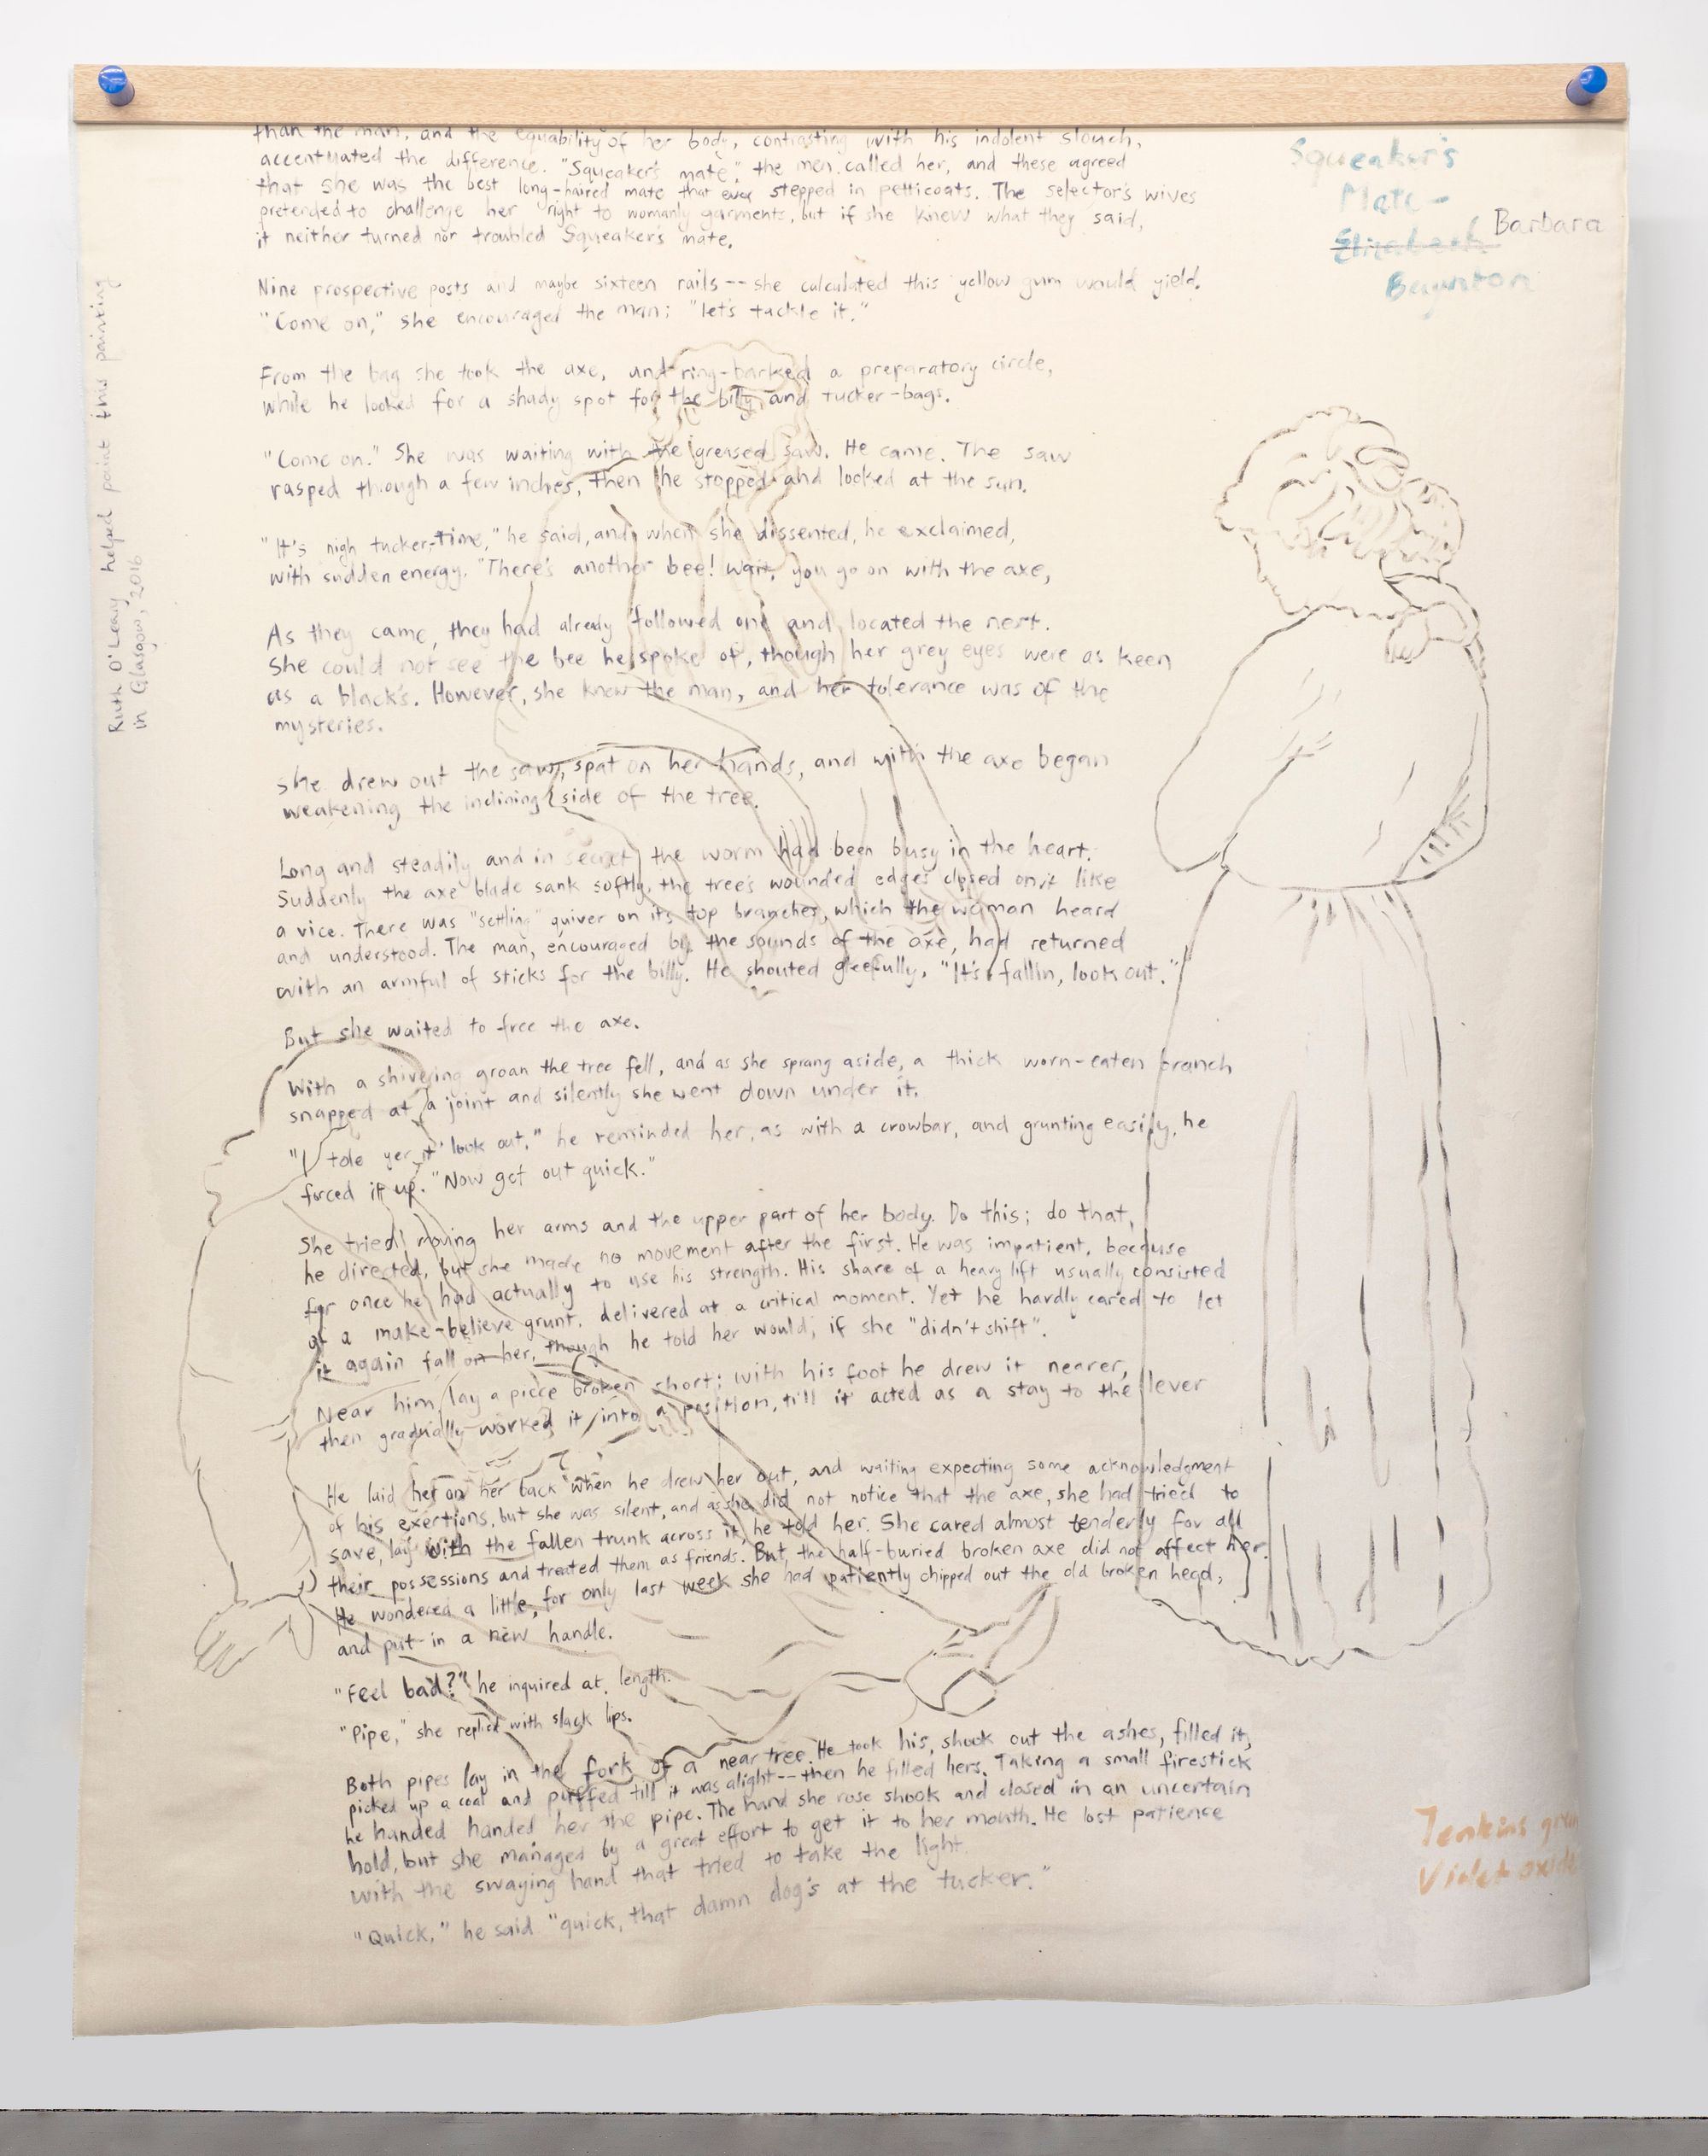 than the man, and the equability of her body, contrasting with his indolent slouch,
accentuated the difference. "Squeaker's mate", the men called her, and these agreed
that she was the best long-haired mate that ever stepped in petticoats. The selector's wives
pretended to challenge her right to womanly garments, but if she knew what they said,
it neither turned nor troubled Squeaker's mate.
Nine prospective posts and maybe sixteen rails -- she calculated this yellow gum would yield.
"Come on," she encouraged the man; "let's tackle it."
From the bag she took the axe, and ring-barked a preparatory circle,
while he looked for a shady spot for the billy and tucker-bags.
"Come on." She was waiting with the greased saw. He came. The saw
rasped though a few inches, then he stopped and looked at the sun.
"It's nigh tucker-time," he said, and when she dissented, he exclaimed,
with sudden energy. "There's another bee! Wait, you go on with the axe,
As they came, they had already followed one and located the nest.
She could not see the bee he spoke of, though her grey eyes were as keen
as a black's. However, she knew the man, and her tolerance was of the
mysteries.
She drew out the saw, spat on her hands, and with the axe began
weakening the inclining side of the tree.
Long and steadily and in secret the worm had been busy in the heart.
Suddenly the axe blade sank softly, the tree's wounded edges closed on it like
a vice. There was "settling" quiver on its top branches, which the woman heard
and understood. The man, encouraged by the sounds of the axe, had returned
with an armful of sticks for the billy. He shouted gleefully, "It's fallin, look out."
But she waited to free the axe.
With a shivering groan the tree fell, and as she sprang aside, a thick worn-eaten branch
snapped at a joint and silently she went down under it.
"I tole yer t' look out," he reminded her, as with a crowbar, and grunting easily, he
forced it up. "Now get out quick."
She tried moving her arms and the upper part of her body. Do this; do that,
he directed, but she made no movement after the first. He was impatient, because
for once he had actually to use his strength. His share of a heavy lift usually consisted
of a make-believe grunt, delivered at a critical moment. Yet he hardly cared to let
it again fall on her, though he told her would, if she "didn't shift".
Near him lay a piece broken short; with his foot he drew it nearer,
then gradually worked it into a position, till it acted as a stay to the lever
He laid her on her back when he drew her out, and waiting expecting some acknowledgment
of his exertions, but she was silent, and as she did not notice that the axe, she had tried to
save, lay with the fallen trunk across it, he told her. She cared almost tenderly for all
their possessions and treated them as friends. But, the half-buried broken axe did not affect her.
He wondered a little, for only last week she had patiently chipped out the old broken head,
and put in a new handle.
"Feel bad?" he inquired at length.
"Pipe," she replied with slack lips.
Both pipes lay in the fork of a near tree. He took his, shook out the ashes, filled it,
picked up a coal and puffed till it was alight -- then he filled hers. Taking a small firestick
he handed handed her the pipe. The hand she rose shook and closed in an uncertain
hold, but she managed by a great effort to get it to her mouth. He lost patience
with the swaying hand that tried to take the light.
"Quick," he said "quick, that damn dog's at the tucker."
Squeaker's
Mate -
Elizabeth Barbara
Baynton
Ruth O'Leary helped paint this painting
in Glasgow, 2016
Jenkins
Violet oxide